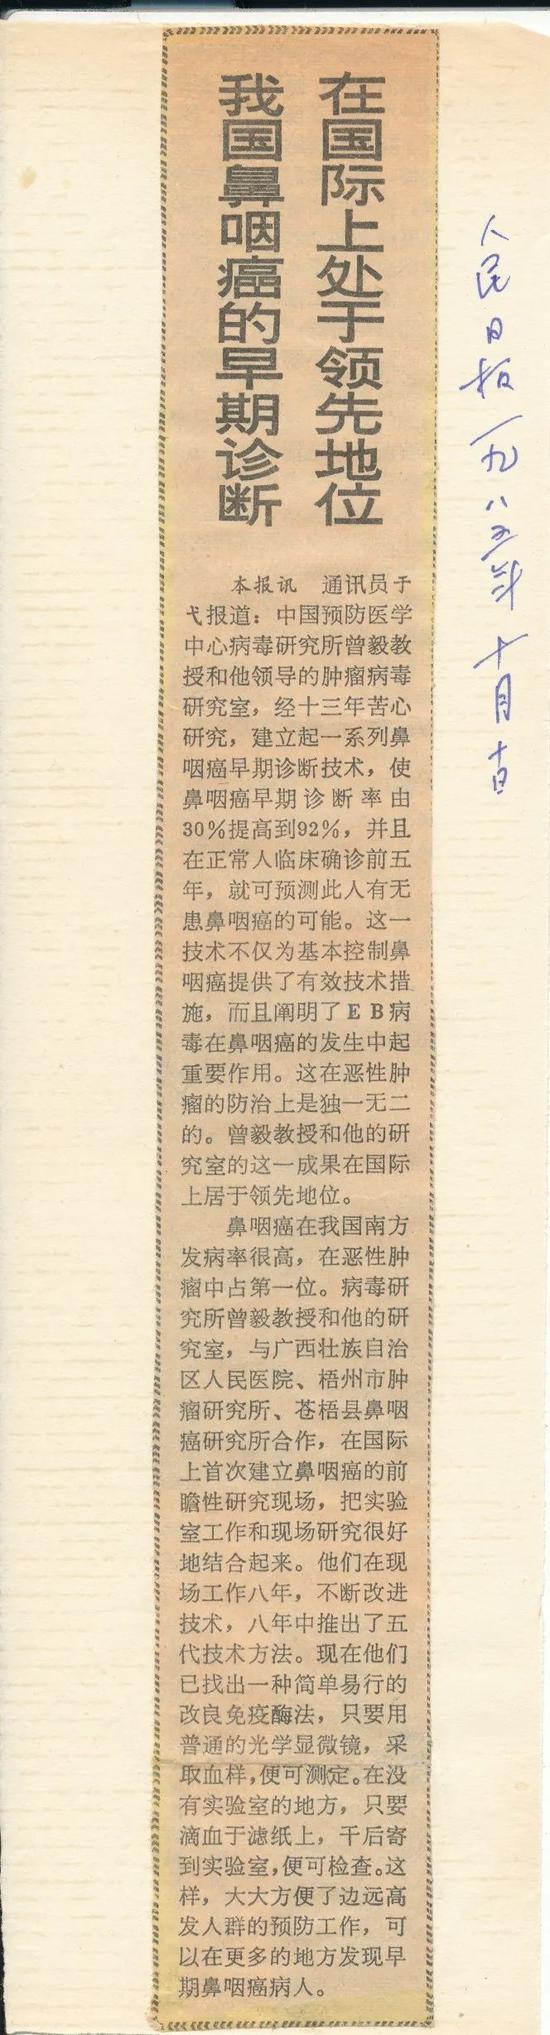 人民日报一九八五年十月十日
在国际上处于领先地位
我国鼻咽癌的早期诊断
本报讯　通讯员于
弋报道：中国预防医学
中心病毒研究所曾毅教
授和他领导的肿瘤病毒
研究室，经十三年苦心
研究，建立起一系列鼻
咽癌早期诊断技术，使
鼻咽癌早期诊断率由
30％提高到92％，并且
在正常人临床确诊前五
年，就可预测此人有无
患鼻咽癌的可能。这一
技术不仅为基本控制鼻
咽癌提供了有效技术措
施，而且阐明了ＥＢ病
毒在鼻咽癌的发生中起
重要作用。这在恶性肿
瘤的防治上是独一无二
的。曾毅教授和他的研
究室的这一成果在国际
上居于领先地位。
鼻咽癌在我国南方
发病率很高，在恶性肿
瘤中占第一位。病毒研
究所曾毅教授和他的研
究室，与广西壮族自治
区人民医院、梧州市肿
瘤研究所、苍梧县鼻咽
癌研究所合作，在国际
上首次建立鼻咽癌的前
瞻性研究现场，把实验
室工作和现场研究很好
地结合起来。他们在现
场工作八年，不断改进
技术，八年中推出了五
代技术方法。现在他们
已找出一种简单易行的
改良免疫酶法，只要用
普通的光学显微镜，采
取血样，便可测定。在没
有实验室的地方，只要
滴血于滤纸上，干后寄
到实验室，便可检查。这
样，大大方便了边远高
发人群的预防工作，可
以在更多的地方发现早
期鼻咽癌病人。